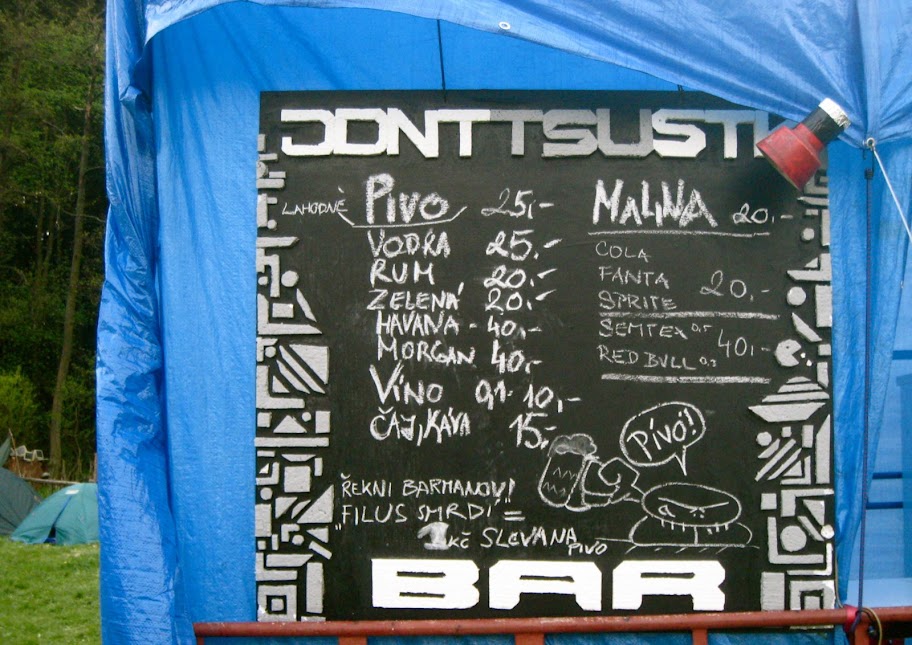 LAHODNÉ PIVO 25,-
VODKA 25,-
RUM 20,-
ZELENÁ 20,-
HAVANA - 40,-
MORGAN 40,-
VÍNO 0,1- 10,-
ČAJ, KÁVA 15,-
MALINA 20,-
COLA
FANTA 20,-
SPRITE
SEMTEX 0,5 40,-
RED BULL
Pívo!
ŘEKNI BARMANOVI
"FILUS SMRDÍ" =
1 KČ SLEVA NA PIVO
BAR